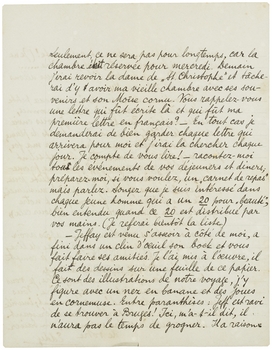 seulement, ce ne sera pas pour longtemps, car la
chambre est réservée pour mercredi. Demain
j'irai revoir la dame de "St Christophe" et tâche-
rai d'y avoir ma vieille chambre avec ses sou-
venirs et son Moïse cornu. Vous rappelez-vous
une lettre qui fut écrite là et qui fut ma
première lettre en français? – En tout cas je
demanderai de bien garder chaque lettre qui
arrivera pour moi et j'irai la chercher chaque
jour. Je compte de vous lire! – racontez-moi
tous les événements de vos déjeuners et diners,
préparez-moi, si vous voulez, un "carnet de types"
mais parlez. Songez que je suis intéressé dans
chaque jeune homme qui a un 20 pour beauté;
bien entendu quand ce 20 est distribué par
vos mains. (Je referai bientôt la liste.)
– Jeffay est venu s'asseoir à côté de moi, a
fini dans un clin d'œuil son bock et vous
fait faire ses amitiés. Je l'ai mis à l'œuvre, il
fait des dessins sur une feuille de ce papier.
Ce sont des illustrations de notre voyage, j'y
figure avec un nez en banane et des joues
en cornemuse. Entre paranthèses: Jeff est ravi
de se trouver à Bruges! Ici, m'a-t-il dit, il
n'aura pas le temps de grogner. La raison